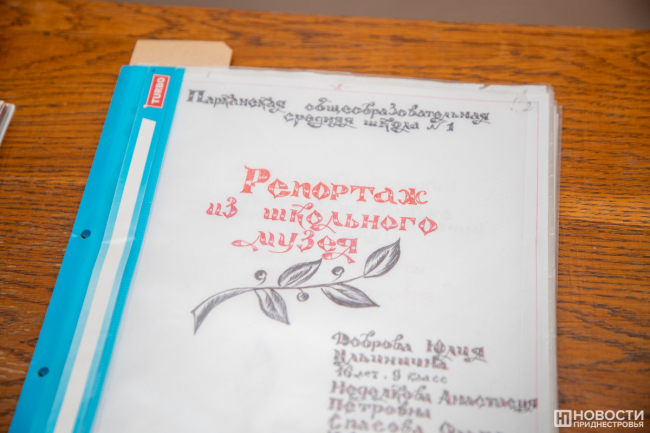 TURBO
Парканская общеобразовательная
средняя школа №1
Репортаж
из школьного
музея
Доброва Юлия
Ильинична
16 лет, 9 класс
Неделкова Анастасия
Петровна
Спасова
НОВОСТИ
ПРИДНЕСТРОВЬЯ